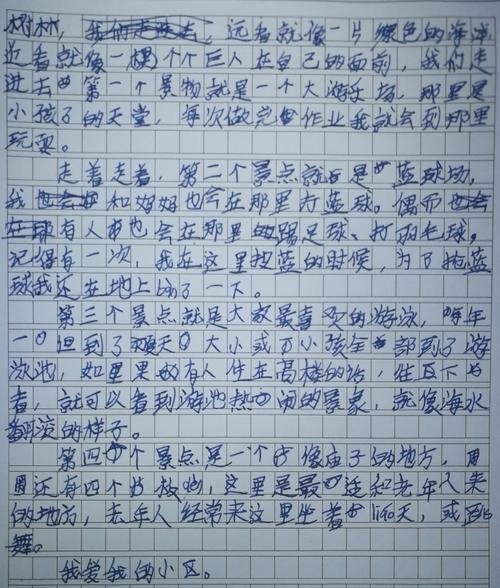 树林，我们走进去，远看就像一片绿色的海洋
近看就像一棵个个巨人在自己的面前，我们走
进去第一个景物就是一个大游乐场，那里是
小孩子的天堂，每次做完作业我就会到那里
玩耍。
走着走着，第二个景点就是篮球场，
我也会和好好也会在那里打蓝球。偶而也会
有人也会在那里踢足球、打羽毛球，
记得有一次，我在这里投蓝的时候，为了抱蓝
球我还在地上了一下。
第三个景点就是大家最喜欢的游泳，每年
一但到了夏天大小或小孩全部部到了游
泳池，如里果有人住在高楼的话，往下
看，就可以看到游池热闹的景象，就像海水
翻滚的样子。
第四个景点是一个像庙子的地方，周
围还有四个，这里是最适和老年人来
的地方，老年人经常来这里坐着聊天，或跳
舞。
我爱我的小区。